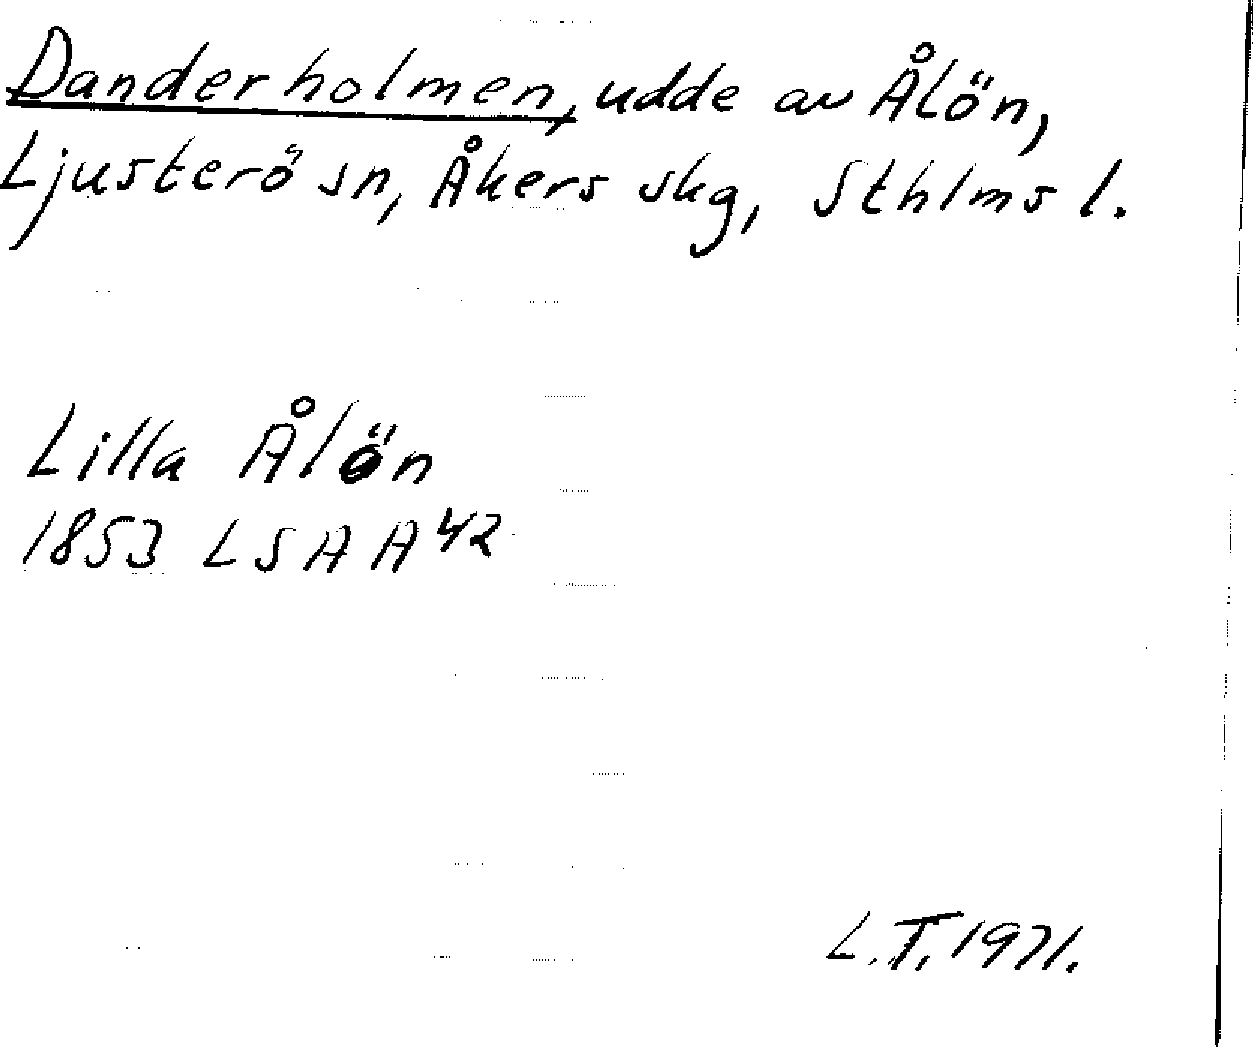 Danderholmen, udde av Ålön,
Ljusterö sn, Åkers skg, Sthlms l.
Lilla Ålön
1853 LSA A42
L.T. 1971.